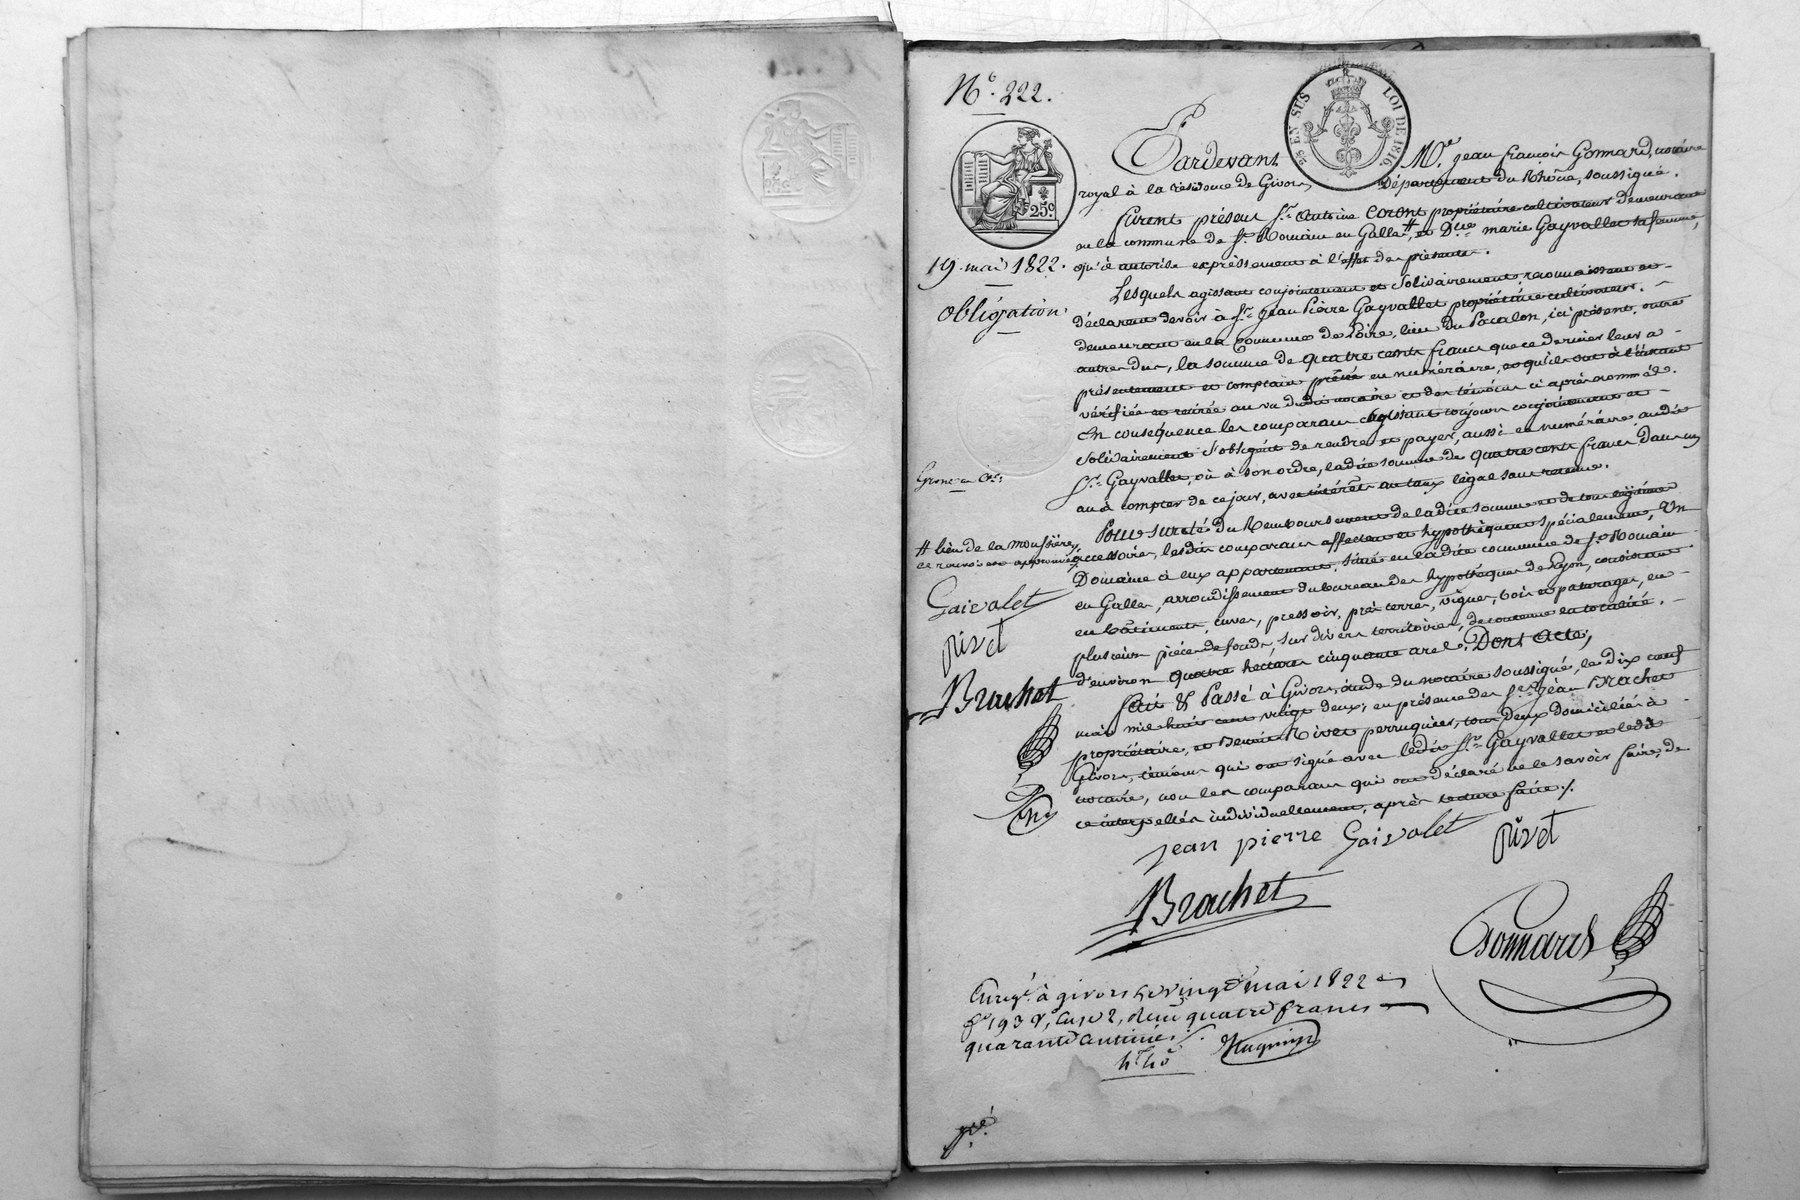 N.º 222.
25 EN SUS LOI DE 1816.
25.c
19 mai 1822.
Obligation.
Grosse en
# lieu de la moussière,
ce renvoi est approuvé
Gaivalet
Rivet
Brachet
Pardevant M.e Jean François Gonnard, notaire
royal à la résidence de Givors, Département du Rhône, soussigné.
Furent présens S.r Antoine Coront propriétaire cultivateur demeurant
en la commune de S.t Romain en Gallet #, et D.me marie Gayvallet sa femme,
qu'il autorise expressement à l'effet des présentes.
Lesquels agissant conjointement et solidairement reconnaissent et
déclarent devoir à S.r Jean Pierre Gayvallet propriétaire cultivateur
demeurant en la Commune de Loire, lieu du Pacalon, ici présent, outre
autres dus, la somme de quatre cents francs que ce dernier leur a
présentement et comptant prêtée en numéraire, et qu'ils ont à l'instant
vérifiée et retirée au vu dudit notaire et des témoins ci après nommés.
En conséquence les comparans agissant toujours conjointement et
solidairement s'obligent de rendre et payer, aussi en numéraire audit
S.r Gayvallet, où à son ordre, ladite somme de quatre cents francs dans un
an à compter de ce jour, avec intérêts au taux légal sans retenue.
Pour sureté du Remboursement de ladite somme et de tous légitime
accessoires, lesdits comparans affectent et hypothèquent spécialement, Un
Domaine à eux appartenant, situé en ladite commune de S.t Romain
en Gallet, arrondissement du bureau des hypothèques de Lyon, consistant
en bâtiments, cuves, pressoir, prés terres, vignes, bois et paturages, en
plusieurs pièces de fonds, sur divers territoires, de contenue en totalité,
d'environ quatre hectares cinquante ares. Dont Acte,
Fait & Passé à Givors, étude du notaire soussigné, le dix neuf
mai mil huit cent vingt deux; en présence des S.rs Jean Brachet
propriétaire, et Benoit Rivet perruquier, tous deux domiciliés à
Givors, témoins qui ont signé avec ledit S.r Gayvallet et ledit
notaire, non les comparans qui ont déclaré ne le savoir faire, de
ce interpellés individuellement, après lecture faite./.
jean pierre Gaivalet Rivet
Brachet
Gonnard
Enreg.é à givors le vingt mai 1822
f.o 193 v.o, Case 2, Reçu quatre francs
quarante centimes